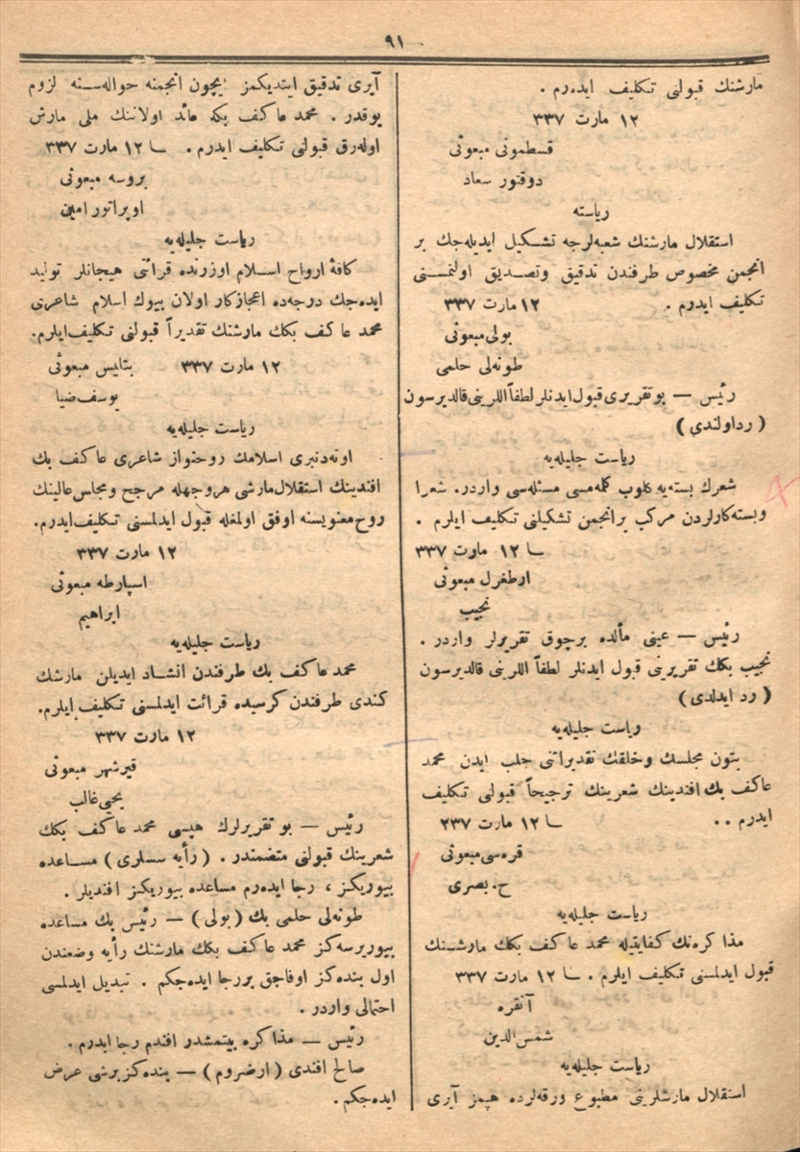 ٩١
مارشنك قبولنی تكلیف ایده‌رم .
١٢ مارت ٣٣٧
قسطمونی مبعوثی
دوقتور سعاد
ریاسته
استقلال مارشنك شعبه‌لرجه تشكیل ایدیله‌جك بر
انجمن مخصوص طرفندن تدقیق وتصدیق اولنمسنی
تكلیف ایدرم . ١٢ مارت ٣٣٧
بولی مبعوثی
طونه‌لی حلمی
رئیس — بو تقریری قبول ایدنلر لطفاً اللرینی قالدیرسون
( رد اولندی )
ریاست جلیله‌یه
شعرك بسته‌یه كلوب كلمه‌مسی مسئله‌سی واردر. شعرا
وبسته‌كارلردن مركب بر انجمن تشكیلنی تكلیف ایلرم .
١٢ مارت ٣٣٧
ارطغرل مبعوثی
نجیب
رئیس — عینی مآلده برچوق تقریرلر واردر .
نجیب بكك تقریرینی قبول ایدنلر لطفاً اللرینی قالدیرسون
( رد ایدلدی )
ریاست جلیله‌یه
بتون مجلسك وخلقك تقدیراتنی جلب ایدن محمد
عاكف بك افندینك شعرینك ترجیحاً قبولنی تكلیف
ایدرم . . ١٢ مارت ٢٣٧
قره‌سی مبعوثی
ح. بصری
ریاست جلیله‌یه
مذاكره‌نك كفایتیله محمد عاكف بكك مارشنك
قبول ایدلمسنی تكلیف ایلرم . ١٢ مارت ٣٣٧
آنقره
شمس الدین
ریاست جلیله‌یه
استقلال مارشلرینی مطبوع ورقه‌لرده هپمز آیری
آیری تدقیق ایتدیكمز ایچون انجمنه حواله‌سنه لزوم
یوقدر . محمد عاكف بكه عائد اولاننك ملی مارش
اوله‌رق قبولنی تكلیف ایدرم . ١٢ مارت ٣٣٧
بروسه مبعوثی
اوپراتور امین
ریاست جلیله‌یه
كافهٔ ارواح اسلام اوزرنده قرائتی هیجانلر تولید
ایده‌جك درجه‌ده اعجازكار اولان بیوك اسلام شاعری
محمد عاكف بكك مارشنك تقدیراً قبولنی تكلیف ایلرم.
١٢ مارت ٣٣٧ بتلیس مبعوثی
یوسف ضیا
ریاست جلیله‌یه
اوته‌دنبری اسلامك روحنواز شاعری عاكف بك
افندینك استقلال مارشی هر وجهله مرجح ومجلس عالینك
روح معنویسنه اوفق اولمغله قبول ایدلمسنی تكلیف ایدرم.
١٢ مارت ٣٣٧
اسپارطه مبعوثی
ابراهیم
ریاست جلیله‌یه
محمد عاكف بك طرفندن انشاد ایدیلن مارشك
كندی طرفندن كرسیده قرائت ایدلمسنی تكلیف ایلرم.
١٢ مارت ٣٣٧
قیرشهر مبعوثی
یحیی غالب
رئیس — بو تقریرلرك هپسی محمد عاكف بكك
شعرینك قبولنی متضمندر . ( رأیه سسلری ) مساعده
بیوریكز ، رجا ایده‌رم مساعده بیوریكز افندیلر .
طونه‌لی حلمی بك ( بولی ) — رئیس بك مساعده
بیوریرسه‌كز محمد عاكف بكك مارشنك رأیه وضعندن
اول بنده‌كز اوفاجق بر رجا ایده‌جكم . تبدیل ایدلمسی
احتمالی واردر .
رئیس — مذاكره بیتمشدر افندم رجا ایدرم .
صالح افندی ( ارضروم ) — بنده‌كز برشی عرض
ایده‌جكم .